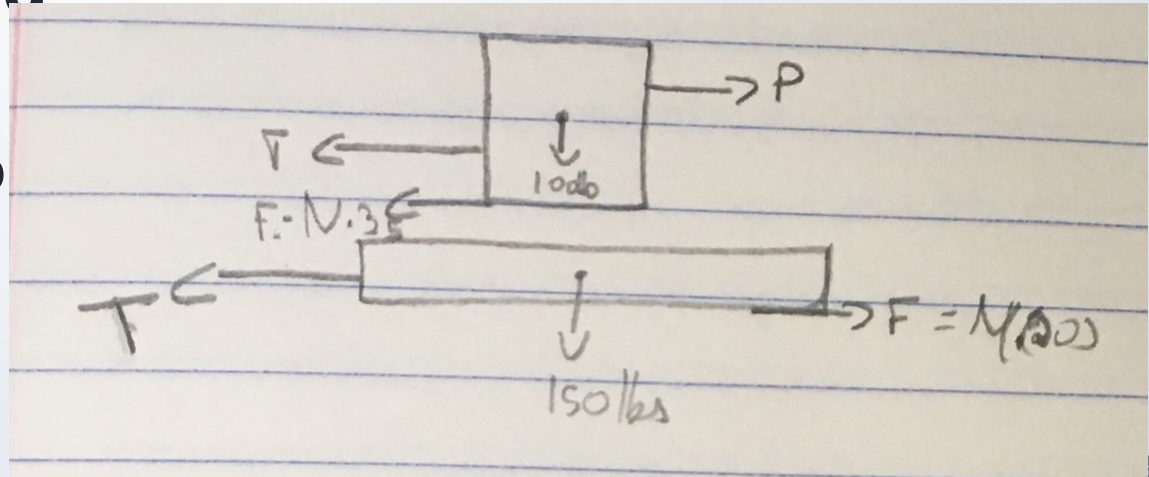 P
T
100lb
F = N.35
T
F = N(.20)
150 lbs